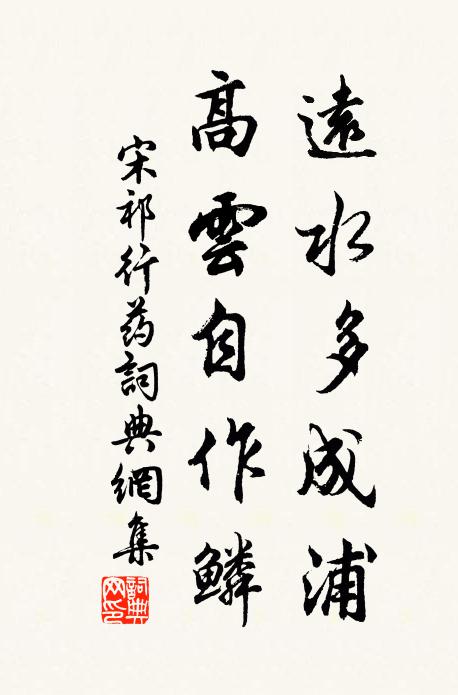 遠水多成浦
高雲自作鱗
宋祁行药詞典網集
詞典网印